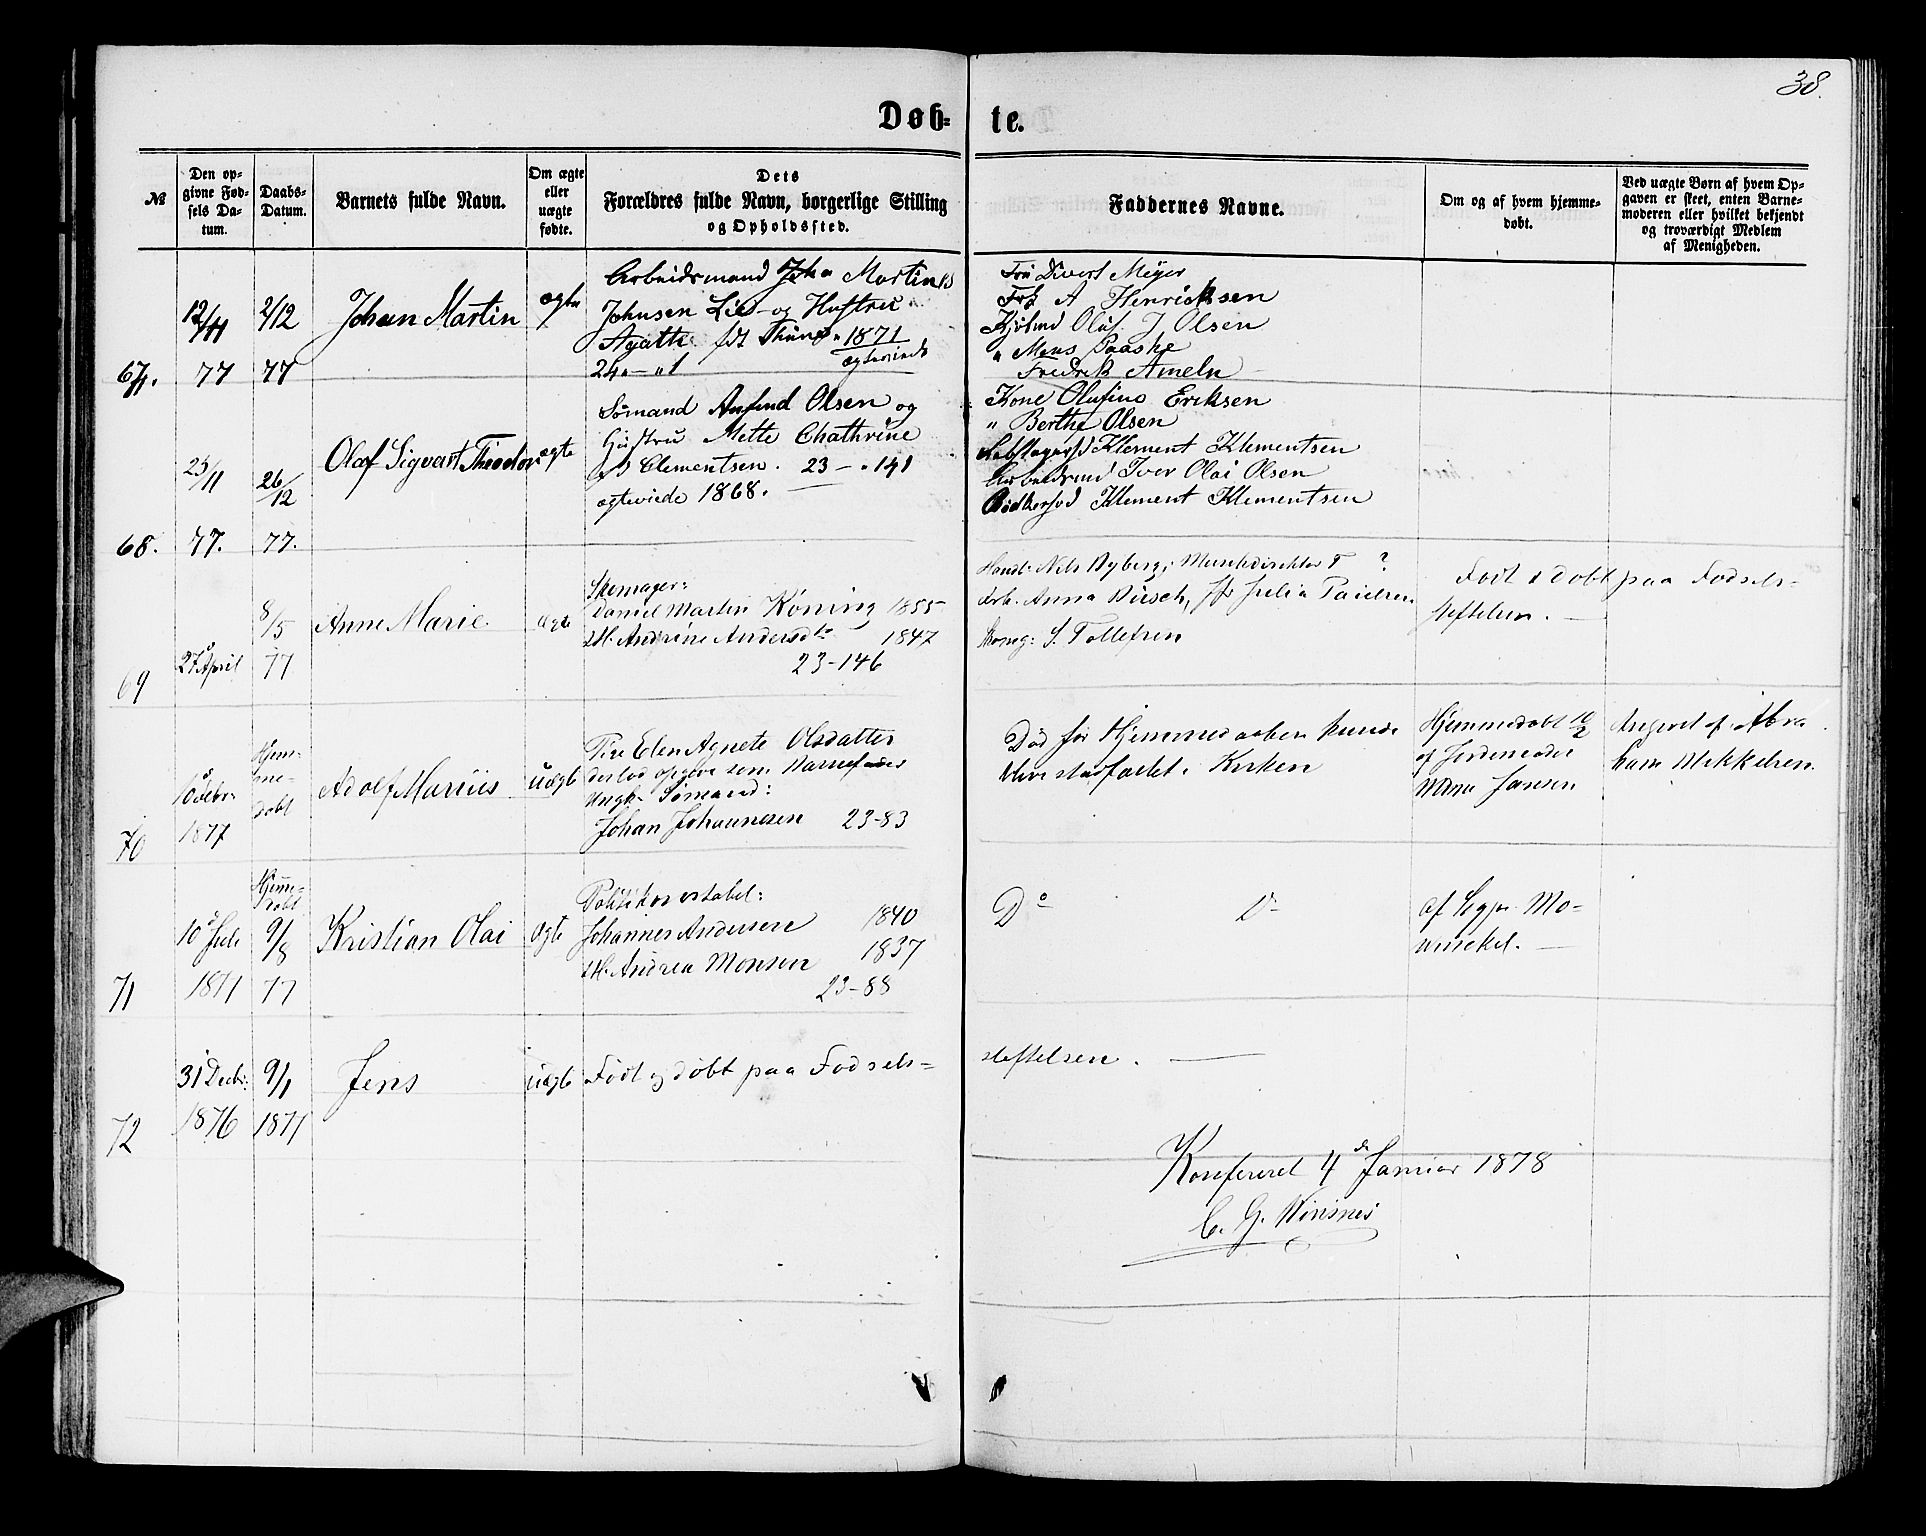 38.
Døb=
te.
№
Den op=
givne Fød=
sels Da=
tum.
Daabs=
Datum.
Barnets fulde Navn.
Om ægte
eller
uægte
fødte.
Dets
Forældres fulde Navn, borgerlige Stilling
og Opholdssted.
Faddernes Navne.
Om og af hvem hjemme=
døbt.
Ved uægte Børn af hvem Op=
gaven er skeet, enten Barne=
moderen eller hvilket bekjendt
og troværdigt Medlem
af Menigheden.
67.
12/11
77
2/12
77
Johan Martin
ægte
Arbeidsmand Martin
Johnsen Lie og Hustru
Agathe fdt 1871
24 ægteviede
Meyer
A Henriksen
Olaf J Olsen
" Mons Paaske
Fredrik Ameln
68.
25/11
77.
26/12
77.
Olaf Sigvart Theodor
ægte
Sømand Olsen og
Hustru Mette Chathrine
Clementsen. 23 - 141
ægteviede 1868.
Kone Olufine Eriksen
" Berthe Olsen
Klement Klementsen
Arbeidsmd Iver Olai Olsen
Bødkersvd Klement Klementsen
69
27 April
8/5
77
Anne Marie
ægte
Skomager:
Daniel Martin Køning 1855
& H. Andrine Andersdtr 1847
23-146
Nels Nyberg, Musikdirektør ?
Anna Büsch, Julia Paulsen
Skomg: S. Tollefsen
Født & døbt paa Fødsels-
stiftelsen.
70
10 Febr.
1877
Hjem-
me-
døbt
Adolf Marius
uægte
Pige Elen Agnete Olsdatter
derfod opgive som Barnefader
Ungk. Sømand:
Johan Johannesen 23-83
Død før Hjemmedaaben kunde
blive stadfæstet i Kirken
Hjemmedøbt 10/2
af Jordemoder
Jansen
Angivet af Abra
ham Mikkelsen.
71
10 Juli
1877
Hjemme-
døbt
9/8
77
Kristian Olai
ægte
Politikonstabel:
Johannes Andersen 1840
& H. Andrea Monsen 1837
23-88
Do
Do
af
72
31 Decbr.
1876
9/1
1877
Jens
uægte
Født og døbt paa Fødsels=
stiftelsen.
Konfereret 4de Januar 1878
C. G. Winsnes